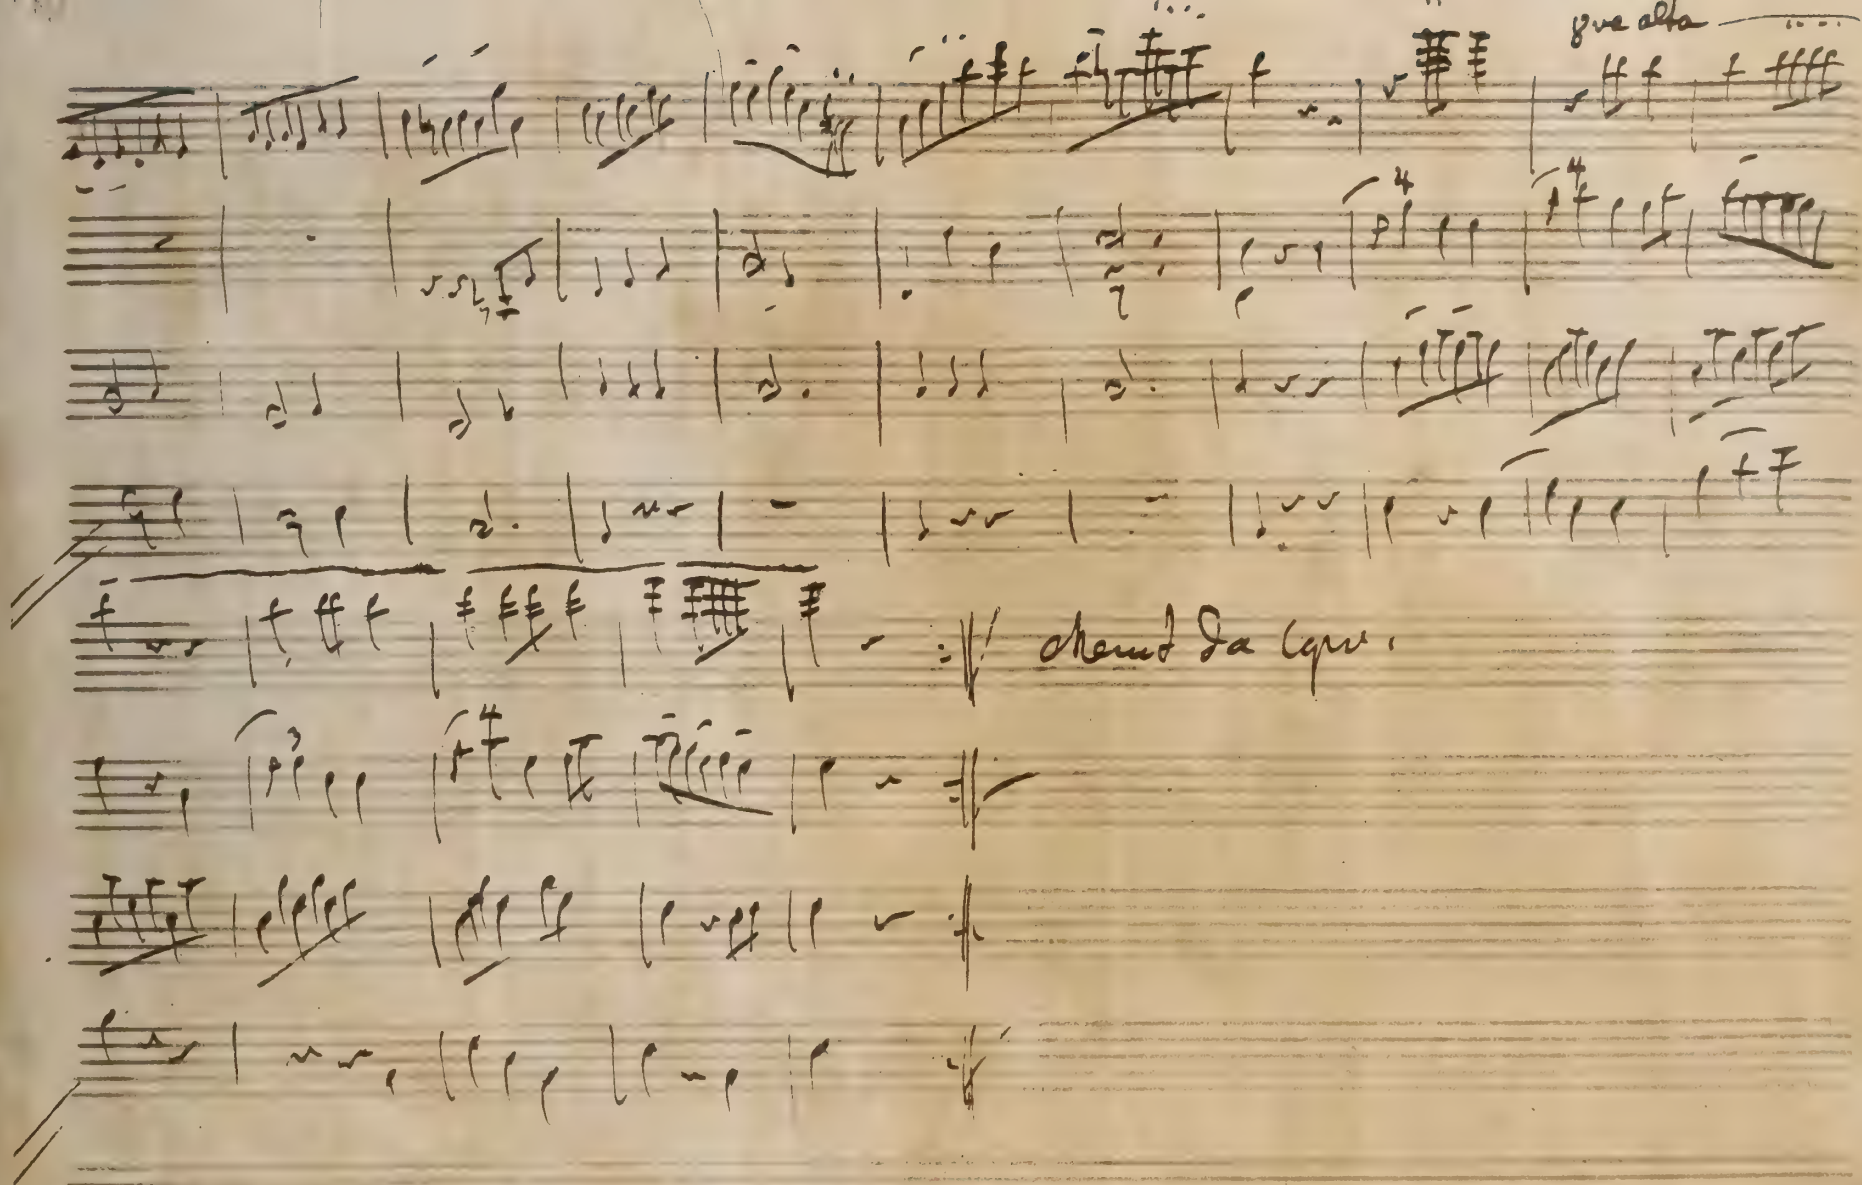 8va alta
4 4
Menuet Da Capo.
3 4